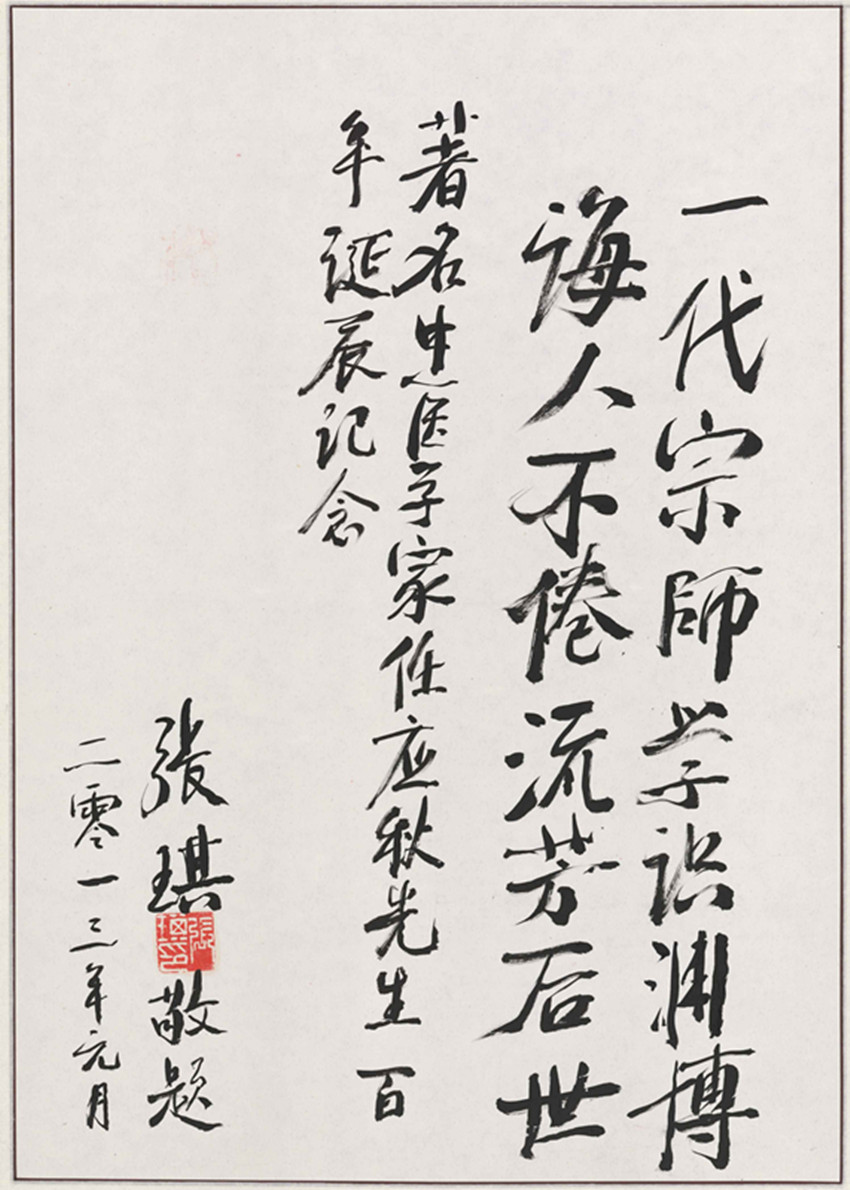 一代宗師学识渊博
诲人不倦流芳后世
著名中医学家任应秋先生百
年诞辰记念
张琪敬题
張琪印
二零一三年元月